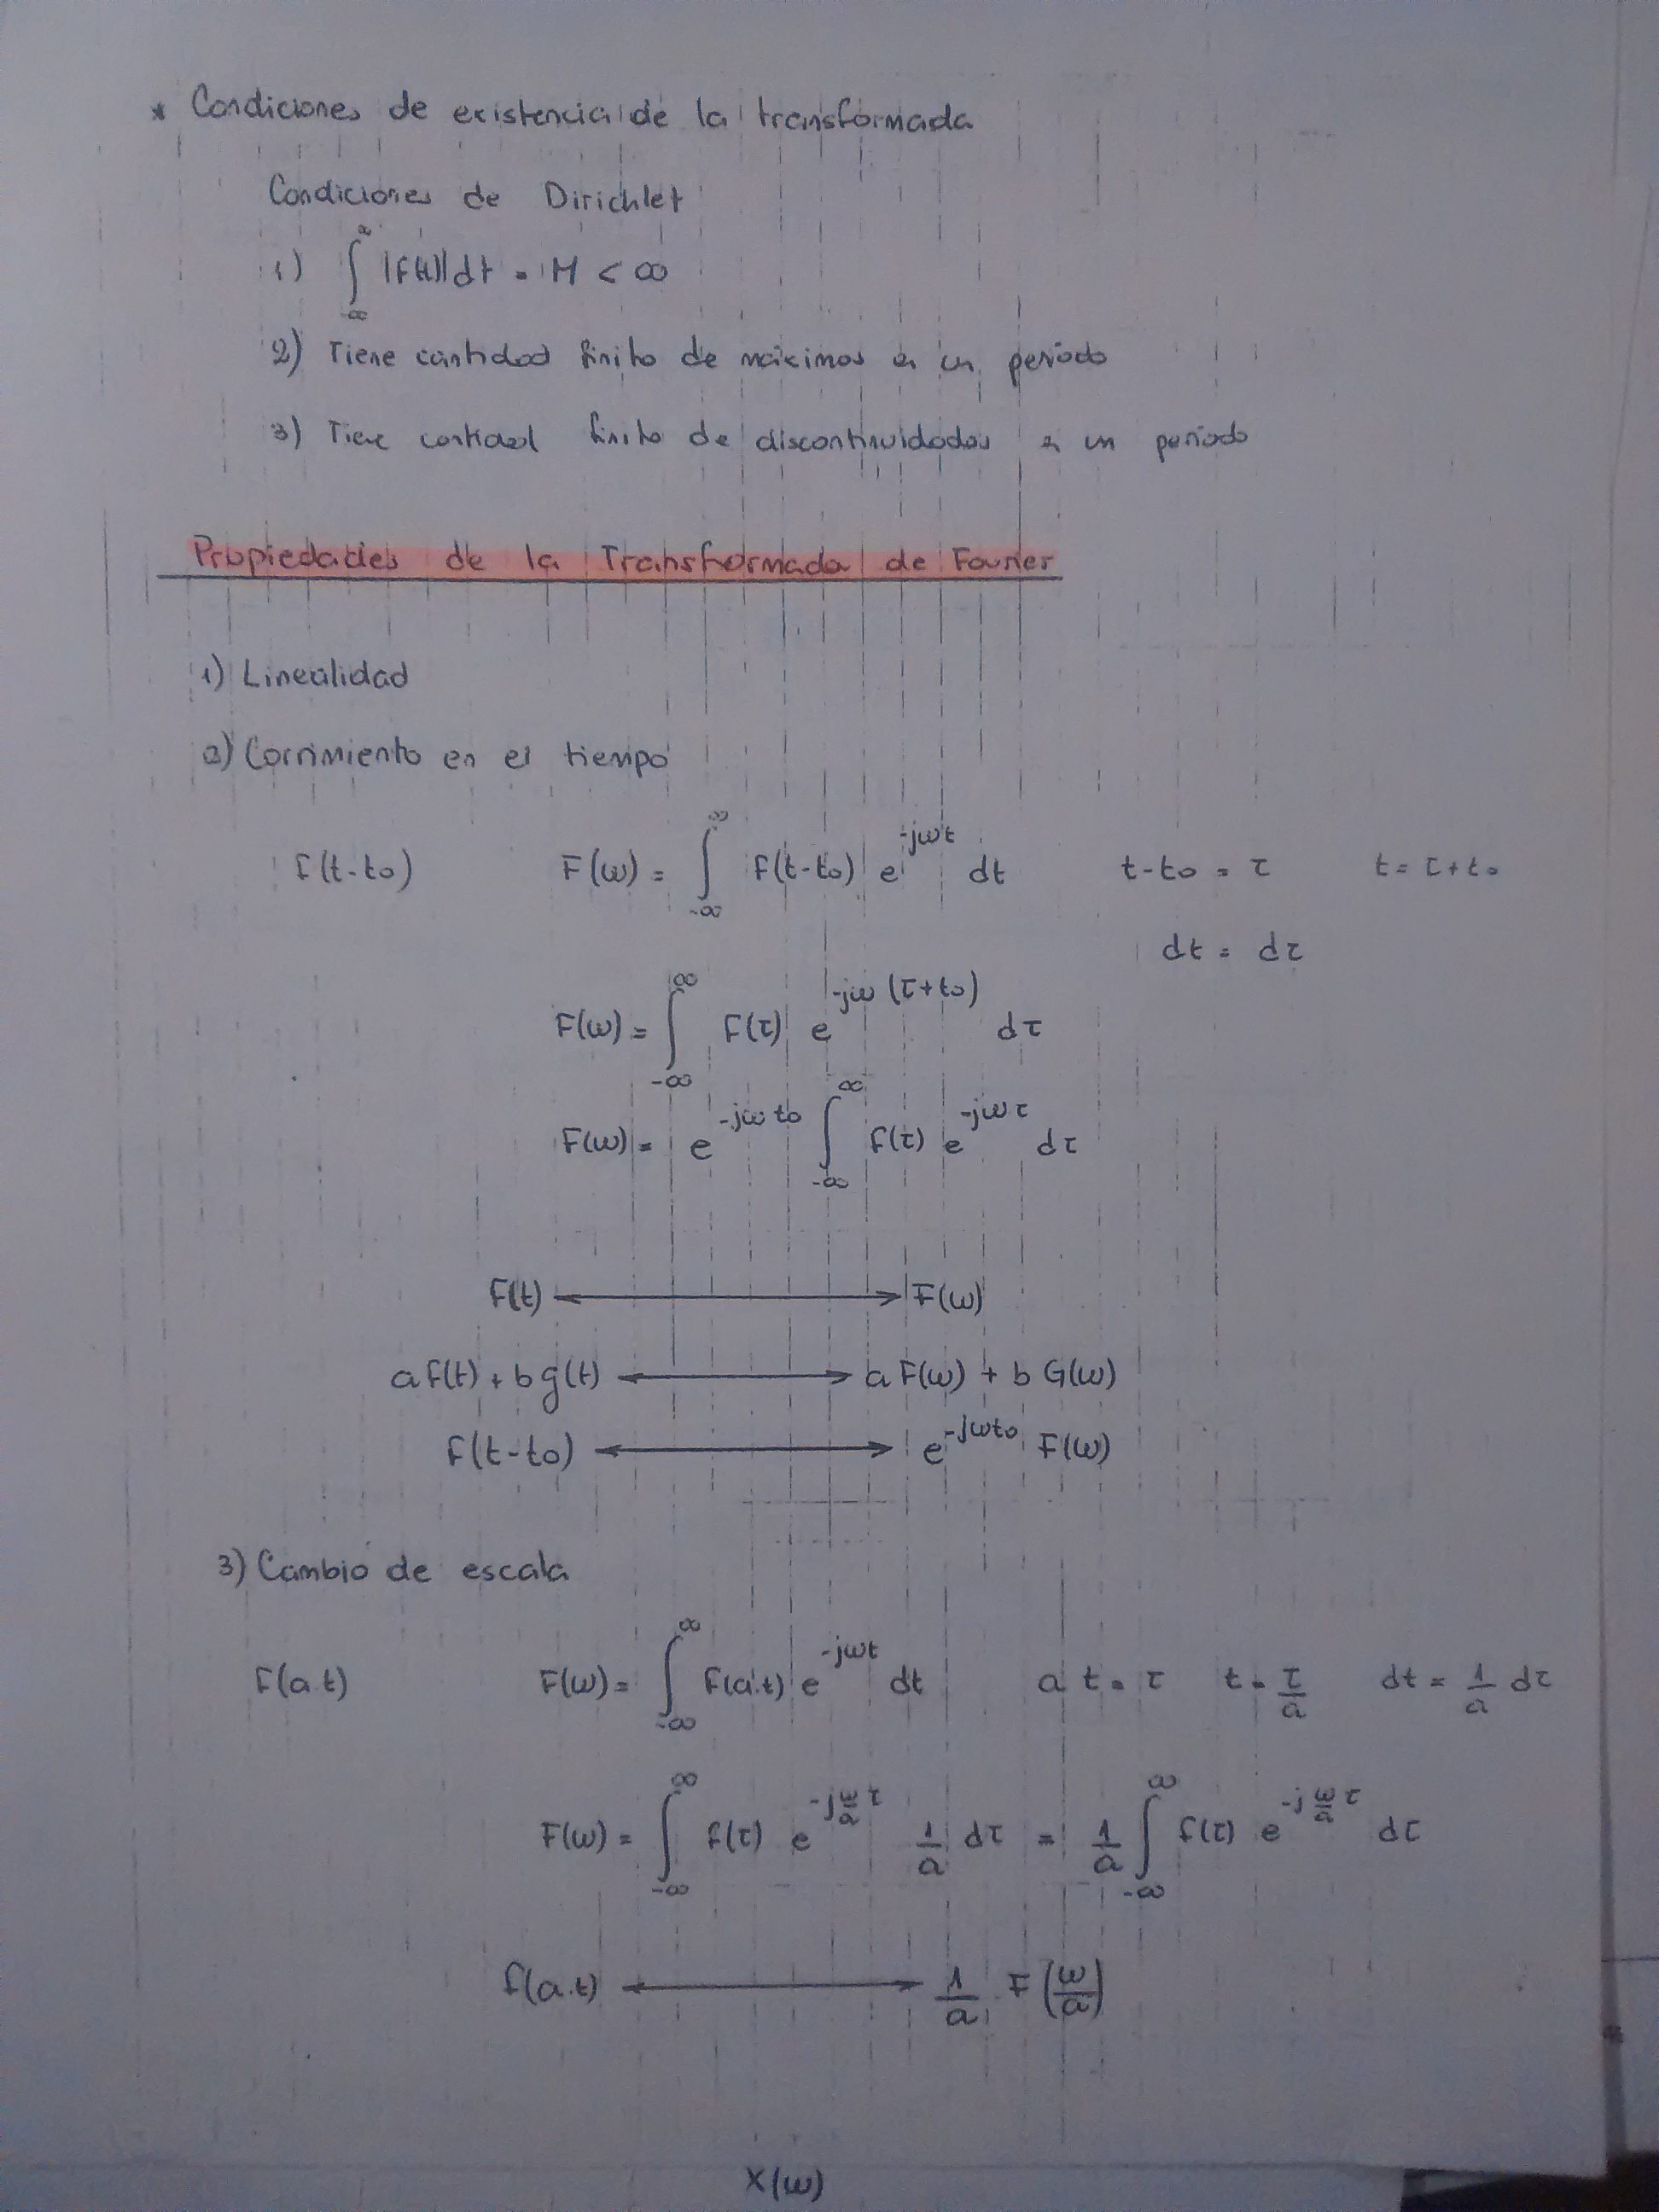 * Condiciones de existencia de la transformada
Condiciones de Dirichlet
1) ∫_{-∞}^{∞} |f(t)| dt = M < ∞
2) Tiene cantidad finito de máximos en un período
3) Tiene cantidad finito de discontinuidades en un período
Propiedades de la Transformada de Fourier
1) Linealidad
2) Corrimiento en el tiempo
f(t-t₀) F(ω) = ∫_{-∞}^{∞} f(t-t₀) e^{-jωt} dt t-t₀ = τ t = τ+t₀
dt = dτ
F(ω) = ∫_{-∞}^{∞} f(τ) e^{-jω(τ+t₀)} dτ
F(ω) = e^{-jωt₀} ∫_{-∞}^{∞} f(τ) e^{-jωτ} dτ
f(t) ⟷ F(ω)
a f(t) + b g(t) ⟷ a F(ω) + b G(ω)
f(t-t₀) ⟷ e^{-jωt₀} F(ω)
3) Cambio de escala
f(a.t) F(ω) = ∫_{-∞}^{∞} f(a.t) e^{-jωt} dt a t = τ t = τ/a dt = 1/a dτ
F(ω) = ∫_{-∞}^{∞} f(τ) e^{-j(ω/a)τ} 1/a dτ = 1/a ∫_{-∞}^{∞} f(τ) e^{-j(ω/a)τ} dτ
f(a.t) ⟷ 1/a F(ω/a)
X(ω)